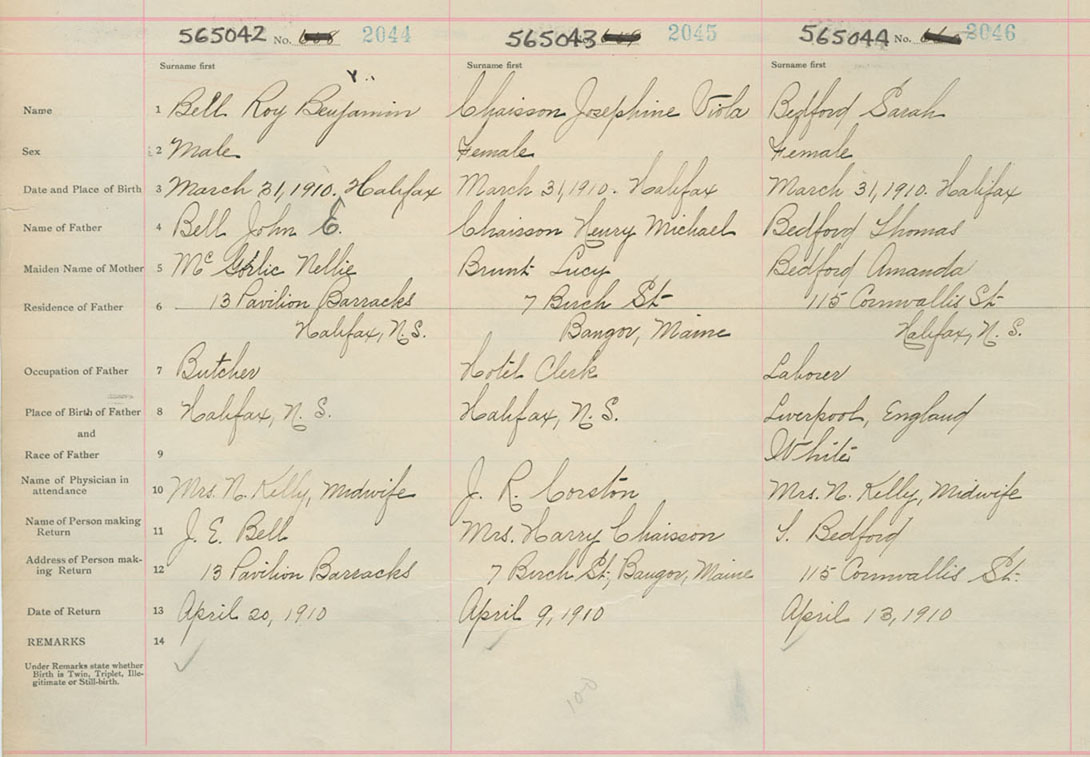 565042 No. 2044 565043 2045 565044 No. 2046
Surname first Surname first Surname first
Name 1 Bell Roy Benjamin Chaisson Josephine Viola Bedford Sarah
Sex 2 Male Female Female
Date and Place of Birth 3 March 31, 1910. Halifax March 31, 1910. Halifax March 31, 1910. Halifax
Name of Father 4 Bell John E. Chaisson Henry Michael Bedford Thomas
Maiden Name of Mother 5 Nellie Brunt Lucy Bedford Amanda
Residence of Father 6 13 Pavilion Barracks 7 Birch St 115 Cornwallis St.
Halifax, N. S. Bangor, Maine Halifax, N. S.
Occupation of Father 7 Butcher Hotel Clerk Laborer
Place of Birth of Father 8 Halifax, N. S. Halifax, N. S. Liverpool, England
and
Race of Father 9 White
Name of Physician in
attendance 10 Mrs. N. Kelly, Midwife J. R. Corston Mrs. N. Kelly, Midwife
Name of Person making
Return 11 J. E. Bell Mrs. Harry Chaisson Bedford
Address of Person mak-
ing Return 12 13 Pavilion Barracks 7 Birch St., Bangor, Maine 115 Cornwallis St.
Date of Return 13 April 20, 1910 April 9, 1910 April 13, 1910
REMARKS 14
Under Remarks state whether
Birth is Twin, Triplet, Ille-
gitimate or Still-birth.
100